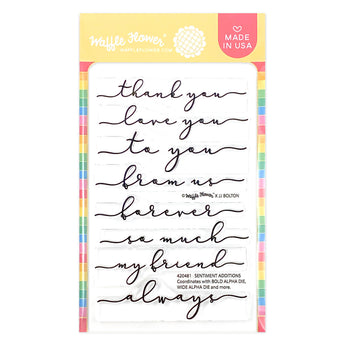 Waffle Flower®
WAFFLEFLOWER.COM
MADE
IN USA
thank you
love you
to you
from us
© Waffle Flower® X JJ BOLTON
forever
so much
my friend
420481 SENTIMENT ADDITIONS
Coordinates with BOLD ALPHA DIE,
WIDE ALPHA DIE and more.
always